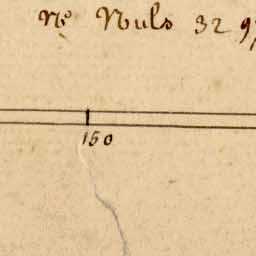 Nº Nuls 32 9
150